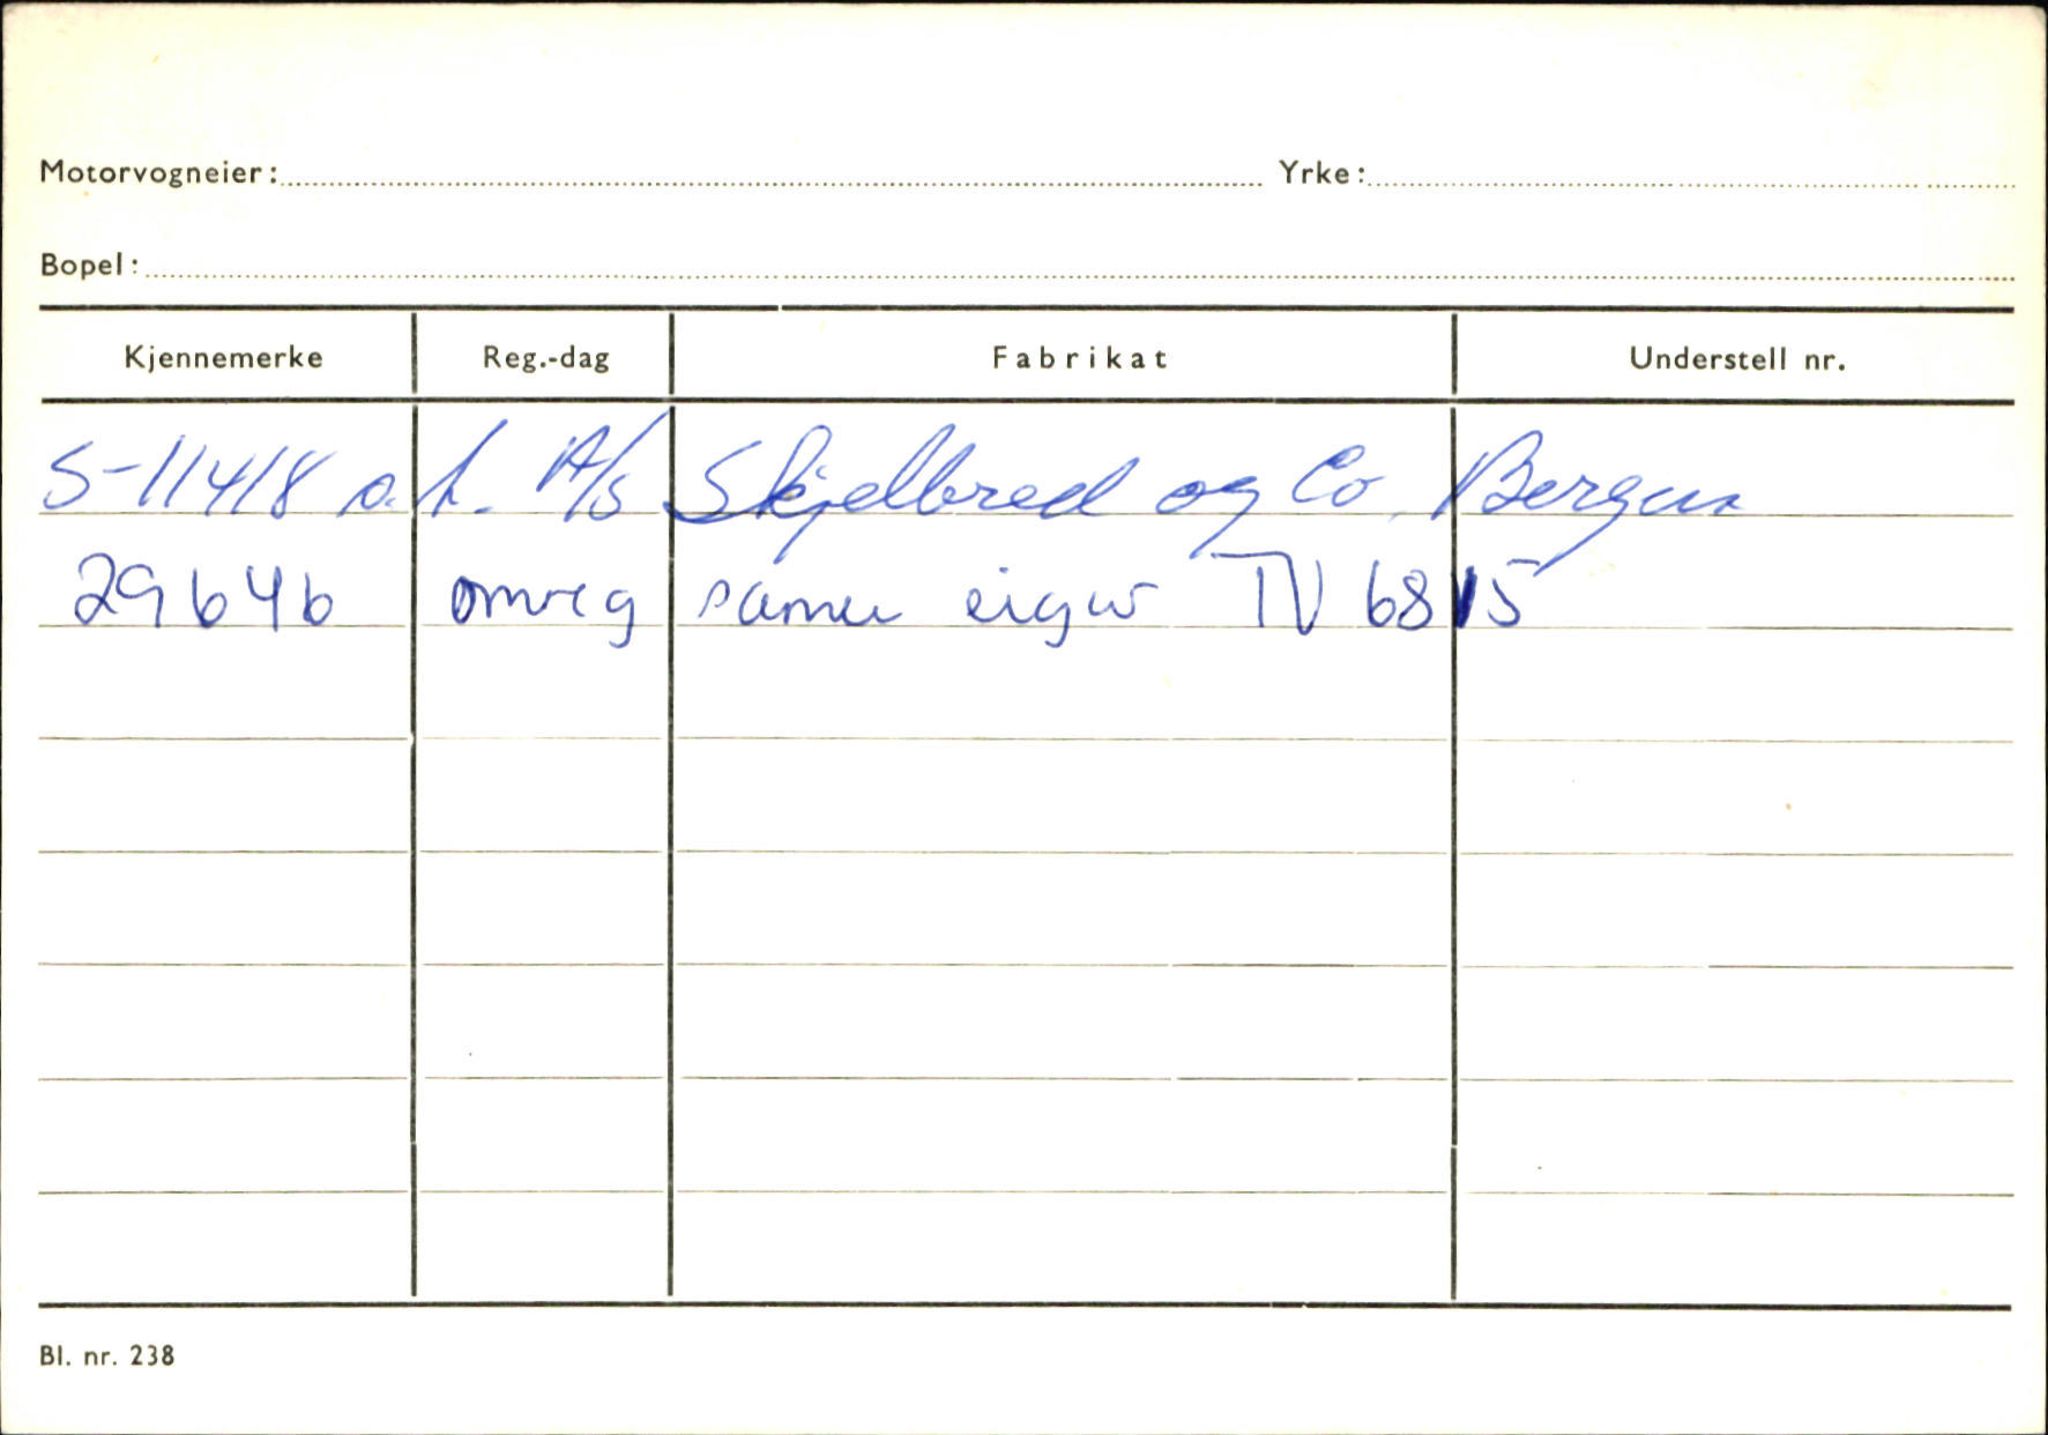 Motorvogneier: Yrke:
Bopel:
Kjennemerke Reg.-dag Fabrikat Understell nr.
S-11418 o.h. A/S Skjelbred og Co, Bergen
29646 omreg same eigar TV 6815
Bl. nr. 238